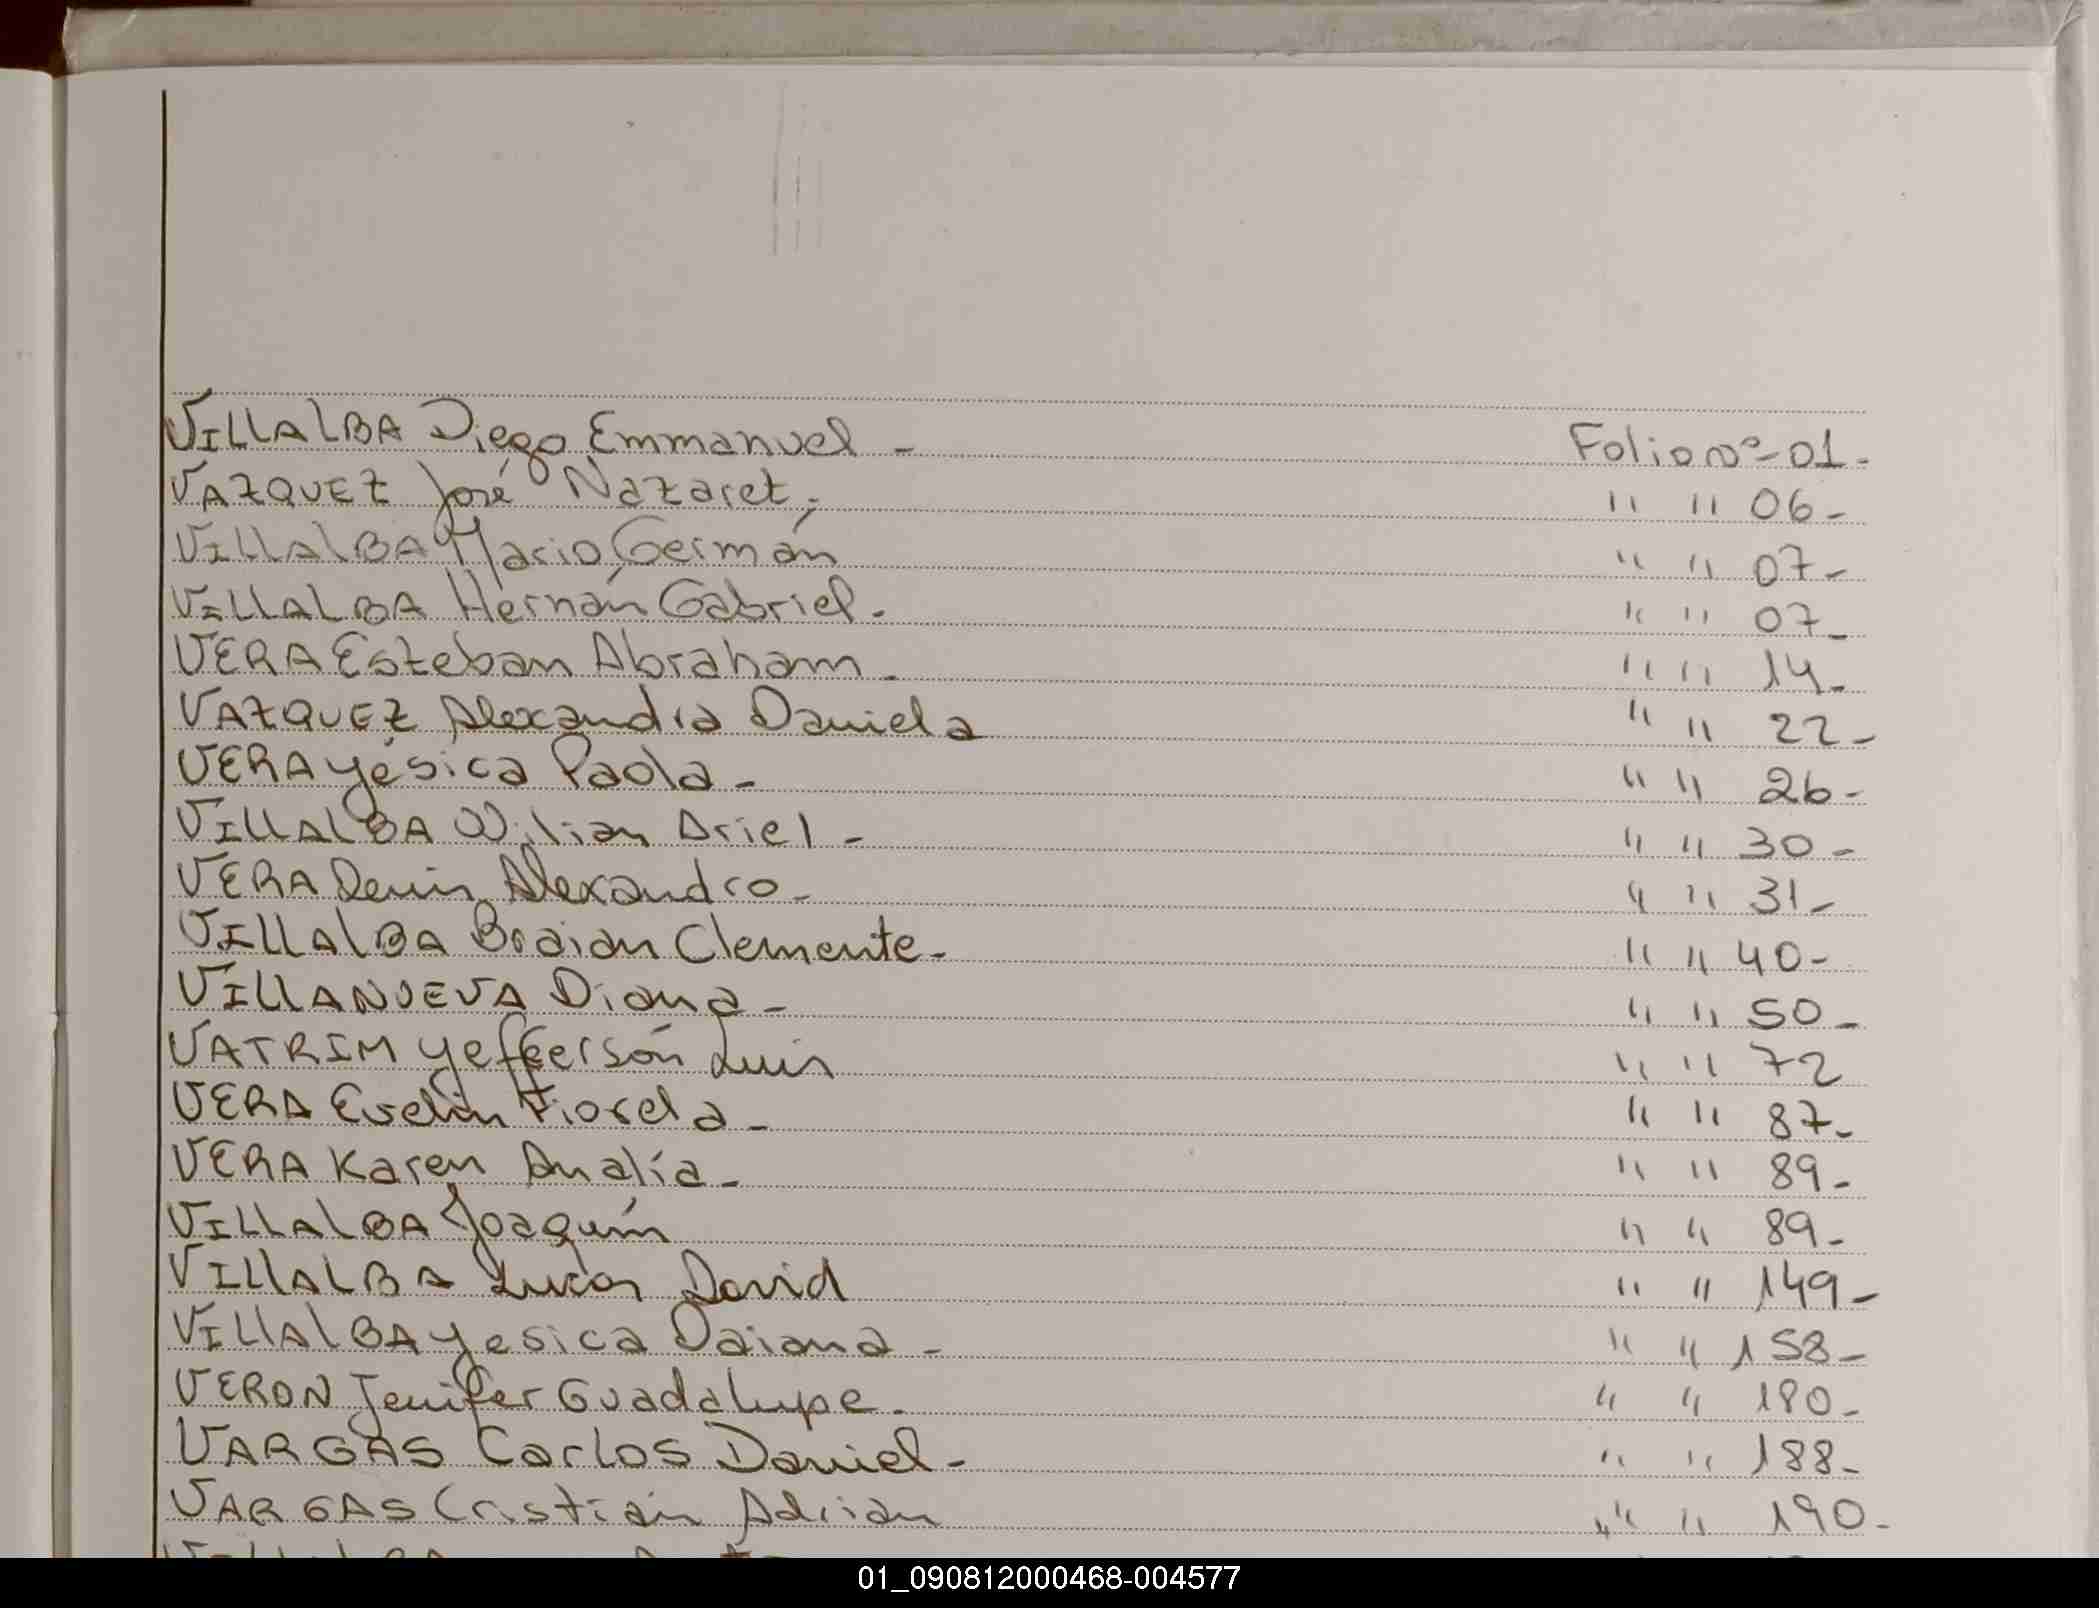 VILLALBA Diego Emmanuel - Folio nº- 01-
VAZQUEZ José Nazaret. " " 06-
VILLALBA Mario Germán " " 07-
VILLALBA Hernán Gabriel. " " 07-
VERA Esteban Abraham. " " 14-
VAZQUEZ Alexandra Daniela " " 22-
VERA Yésica Paola- " " 26-
VILLALBA Wilian Ariel- " " 30-
VERA Denis Alexandro- " " 31-
VILLALBA Braian Clemente- " " 40-
VILLANUEVA Diana- " " 50-
VATRIM Yefferson Luis " " 72
VERA Evelin Fiorela- " " 87-
VERA Karen Analía- " " 89-
VILLALBA Joaquín " " 89-
VILLALBA Lucas David " " 149-
VILLALBA Yesica Daiana- " " 158-
VERON Jenifer Guadalupe. " " 180-
VARGAS Carlos Daniel- " " 188-
VARGAS Cristian Adrian " " 190-
01_090812000468-004577